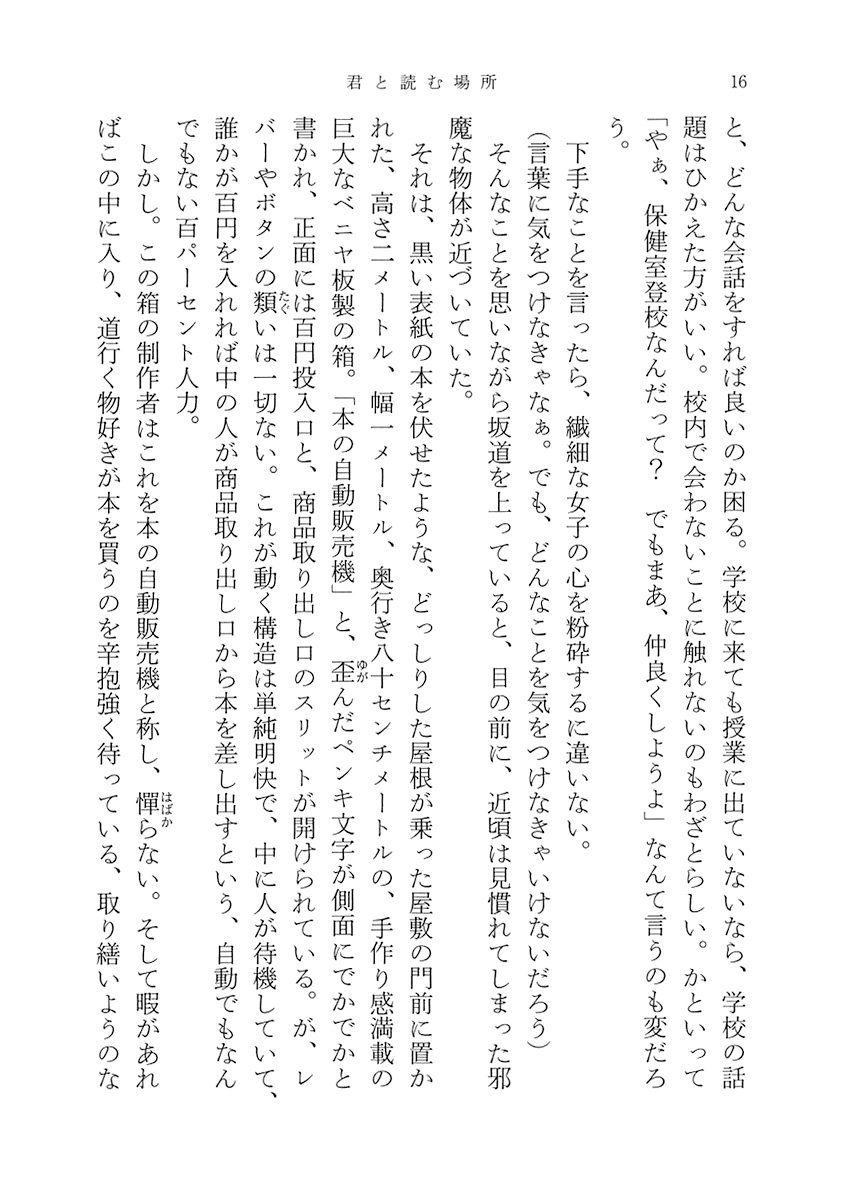 君と読む場所
16
と、どんな会話をすれば良いのか困る。学校に来ても授業に出ていないなら、学校の話
題はひかえた方がいい。校内で会わないことに触れないのもわざとらしい。かといって
「やぁ、保健室登校なんだって？　でもまあ、仲良くしようよ」なんて言うのも変だろ
う。
　下手なことを言ったら、繊細な女子の心を粉砕するに違いない。
（言葉に気をつけなきゃなぁ。でも、どんなことを気をつけなきゃいけないだろう）
　そんなことを思いながら坂道を上っていると、目の前に、近頃は見慣れてしまった邪
魔な物体が近づいていた。
　それは、黒い表紙の本を伏せたような、どっしりした屋根が乗った屋敷の門前に置か
れた、高さ二メートル、幅一メートル、奥行き八十センチメートルの、手作り感満載の
巨大なベニヤ板製の箱。「本の自動販売機」と、歪ゆがんだペンキ文字が側面にでかでかと
書かれ、正面には百円投入口と、商品取り出し口のスリットが開けられている。が、レ
バーやボタンの類たぐいは一切ない。これが動く構造は単純明快で、中に人が待機していて、
誰かが百円を入れれば中の人が商品取り出し口から本を差し出すという、自動でもなん
でもない百パーセント人力。
　しかし。この箱の制作者はこれを本の自動販売機と称し、憚はばからない。そして暇があれ
ばこの中に入り、道行く物好きが本を買うのを辛抱強く待っている、取り繕いようのな